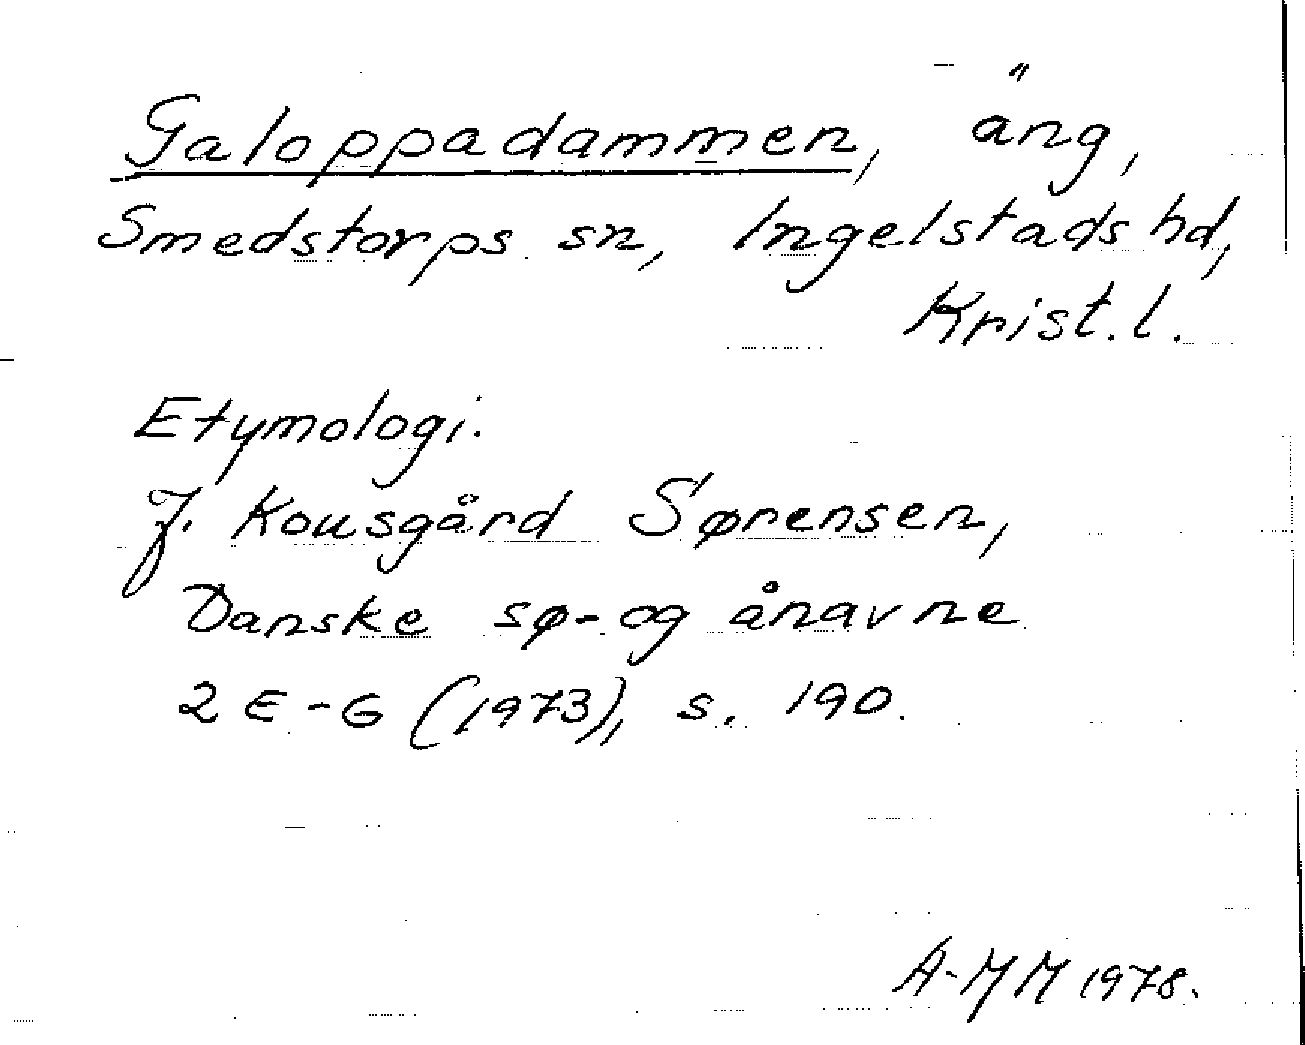 Galoppadammen, äng,
Smedstorps sn, Ingelstads hd,
Krist. l.
Etymologi.
J. Kousgård Sørensen,
Danske sø- og ånavne
2 E-G (1973), s. 190.
A-MM 1978.